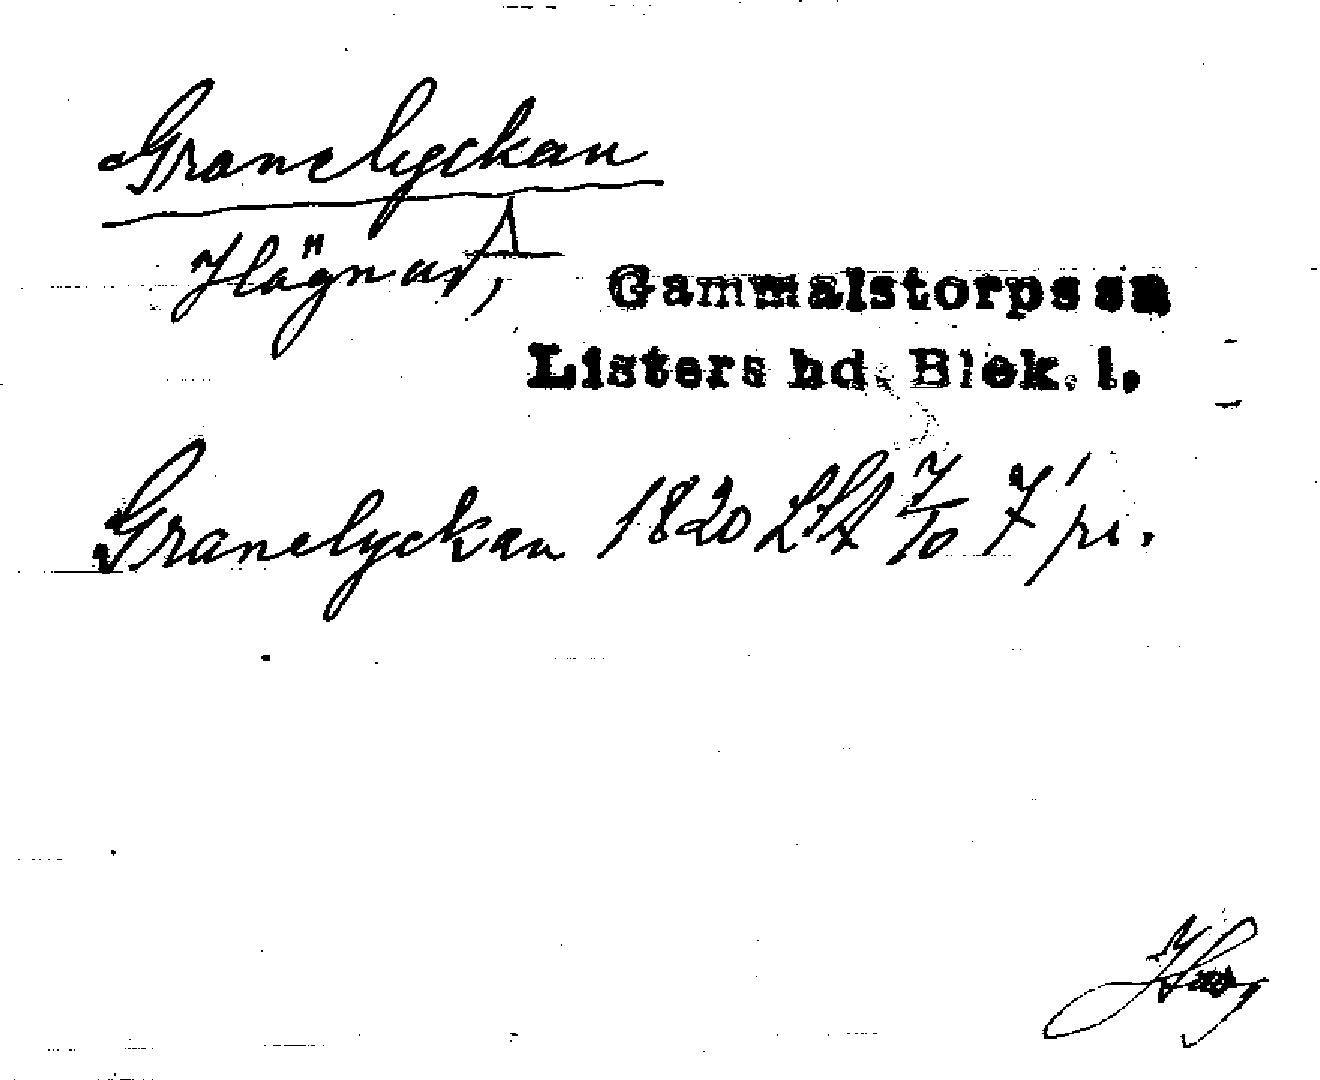 Granelyckan
Högnat,
Gammalstorps sn
Listers hd. Blek. l.
Granelyckan 1820 LSA 7/10 7' pr.